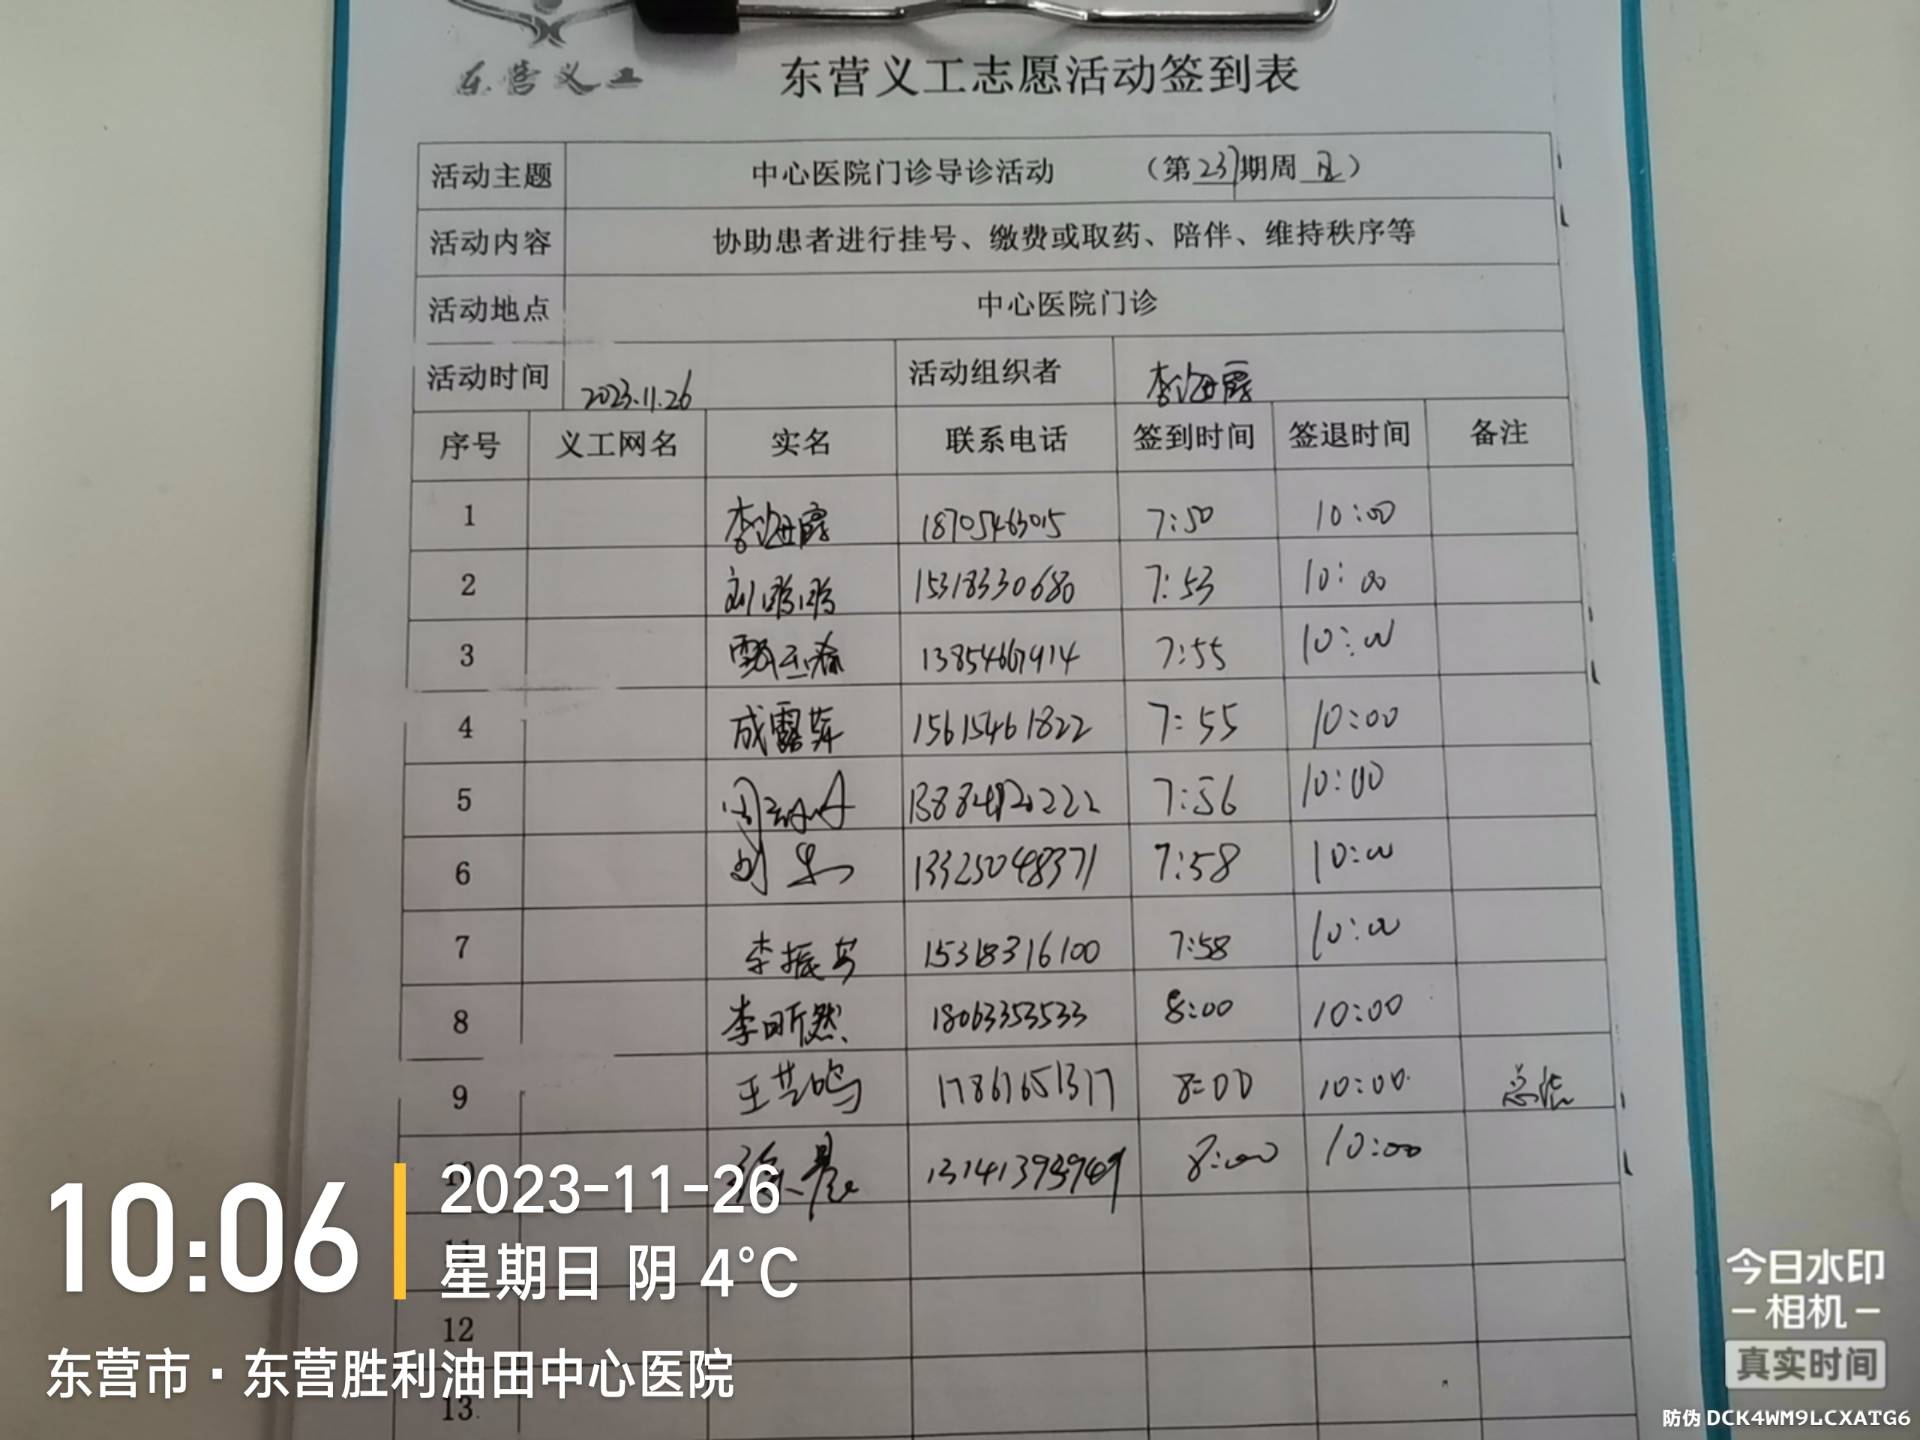 东营义工
东营义工志愿活动签到表
活动主题 中心医院门诊导诊活动 (第237期周五)
活动内容 协助患者进行挂号、缴费或取药、陪伴、维持秩序等
活动地点 中心医院门诊
活动时间 2023.11.26 活动组织者 李海霞
序号 义工网名 实名 联系电话 签到时间 签退时间 备注
1 李海霞 18705463015 7:50 10:00
2 刘鹏鹏 15318330680 7:53 10:00
3 13854667914 7:55 10:00
4 成露萍 15615461822 7:55 10:00
5 7:56 10:00
6 13325048371 7:58 10:00
7 李振芳 15318316100 7:58 10:00
8 李昕然 18063353533 8:00 10:00
9 王艺鸣 17861651317 8:00 10:00 总结
10 徐晨 8:00 10:00
11
12
13
10:06
2023-11-26
星期日 阴 4°C
东营市·东营胜利油田中心医院
今日水印
相机
真实时间
防伪 DCK4WM9LCXATG6